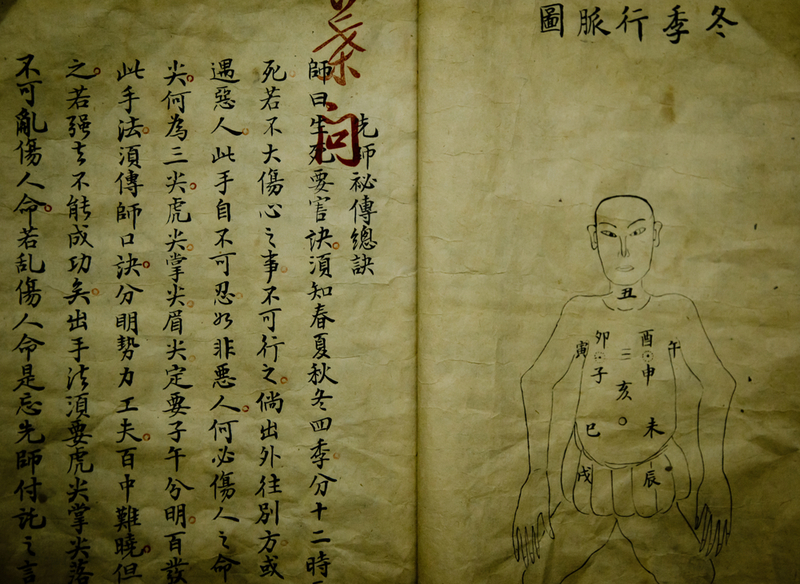 冬季行脈圖
丑
卯 酉
寅 午
子 申
亥
巳 未
戌 辰
問
先師祕傳總訣
師曰生死要害訣須知春夏秋冬四季分十二時
死若不大傷心之事不可行之倘出外往別方或
遇惡人此手自不可忍如非悪人何必傷人之命
尖何為三尖虎尖掌尖眉尖定要子午兮明百發
此手法須傳師口訣分明勢力工夫百中難曉但
之若强去不能成功矣出手法須要虎尖掌尖落
不可亂傷人命若乱傷人命是忘先師付託之言